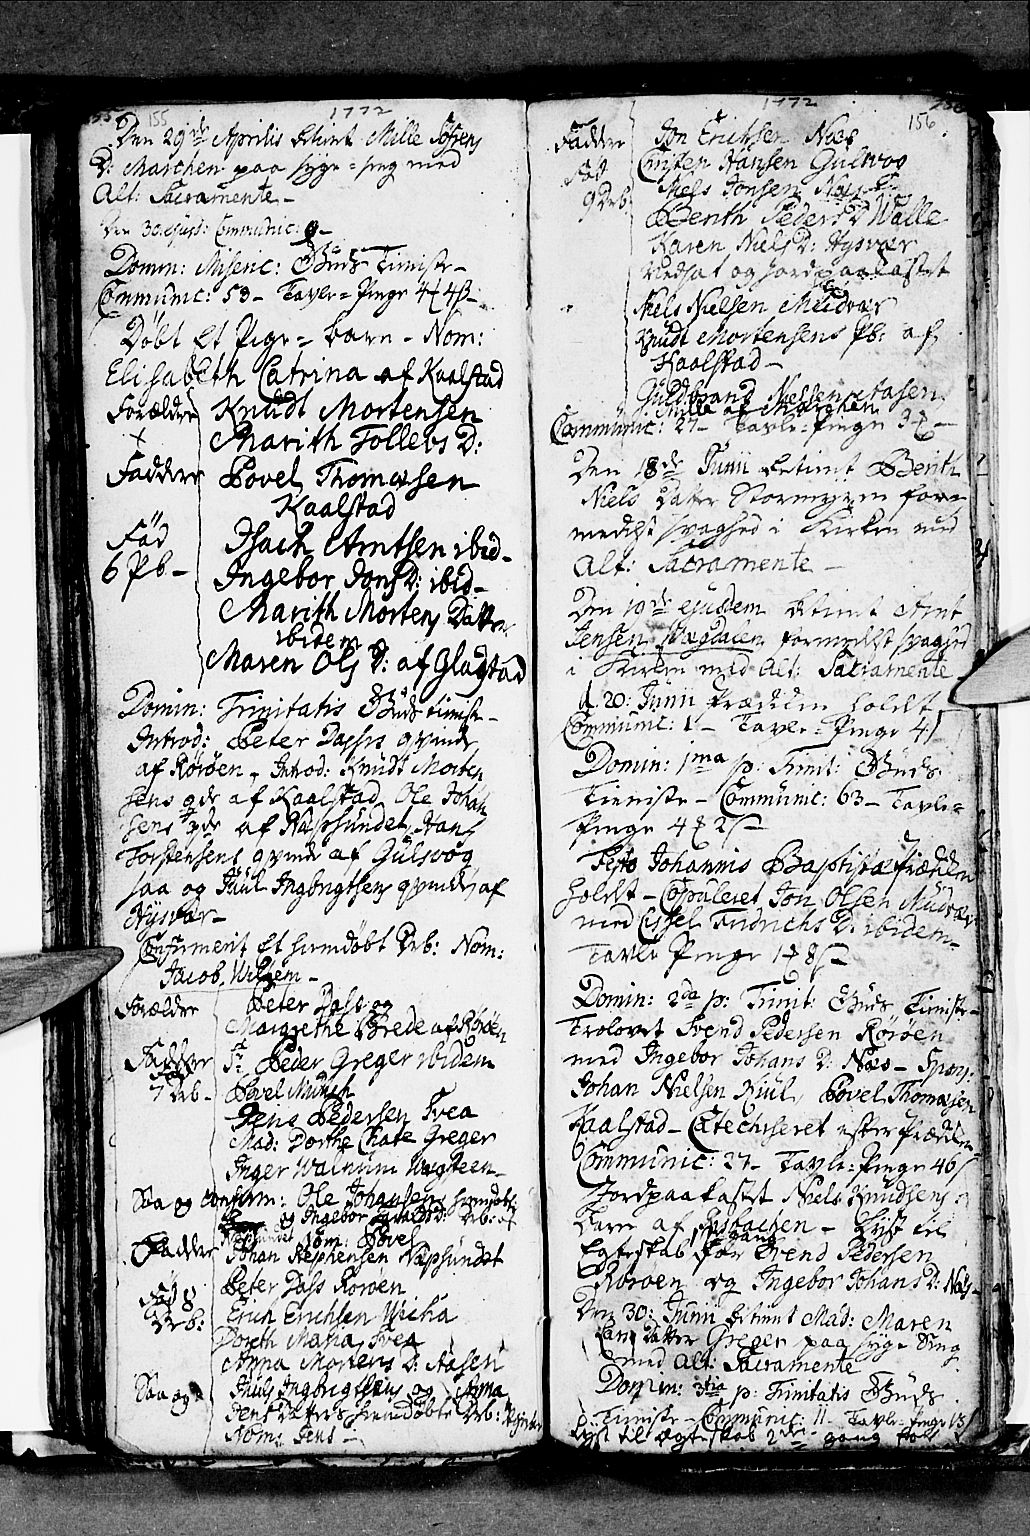 155
1772
Den 29de Aprilis betient Mille Sørens
D: Marchen paa syge-seng med
Alt: Sacramente -
Den 30 ejusd: Communic: 9 -
Domin: Misenc: Guds Tieniste -
Communic: 53 - Tavle-Penge
Døbt Et Pige-barn - Nom:
Elisabeth Catrina af Kaalstad
Forældre Knudt Mortensen
Marith Tollevs D:
Faddere Povel Thomesen
Kaalstad
Isach Arntsen ibid -
Fød
6 Pb - Ingebor Jons D: ibid -
Marith Mortens Datter
ibidem
Maren Ols D: af Glagstad
Domin: Trinitatis Guds tieniste -
Introd: Peter Dasses qvinde
af Rørøen, Introd: Knudt Morten
sens qde af Kaalstad Ole Johan
sens qde af Næssundet, Hans
Torstensens qvinde af Gulsvog
saa og Paul Ingbrigtsens qvinde af
Nysvær -
Confirmerit Et hiemdøbt Drb: Nom:
Jacob Wilzem -
Forældre Peter Dass og
Margrethe Brede af Rørøen
Faddere Sr Peder Greger ibidem
7 Drb - Povel Munch
Jens Pedersen Tvea
Mad: Dorthe Chate Greger
Inger Walnum
Saa og Confirm: Ole Johansens hiemdøbt
og Ingebor Drb: af
Nom: Povel
Faddere Johan Rephensen Næssundet
Peter Dass Rørøen
Fød 8
Drb: Erich Erichsen Wicha
Doreth Maria Tvea
Anna Mortens D: Aasen
Saa og Pauls Ingbrigtsens og Anna
Jens Datters hiemdøbte Drb:
Nom: Jens -
1772
156
Faddere Jon Erichsen Næs
Fød Christen Hansen Gulsvog
9 Drb Niels Jonsen Næs
Berith Peders D: Walle
Karen Niels D: Hysvær
Indsat og jordpaakastet
Niels Nielsen Mudvær
Knudt Mortensens Pb: af
Kaalstad -
Guldbrand Nielsen Aasen
Mille af Marchen
Communic: 27 - Tavle-Penge
Den 18de Junii betient Berith
Niels Datter Stormyren form-
medelst svaghed i Kirken med
Alt: Sacramente -
Den 19de ejusdem betient Arnt
Jensen Magdalen formedelst svaghed
i Kirken med Alt: Sacramente
d. 20: Junii Præddiken holdt
Communic: Tavle-Penge
Domin: 1ma p: Trinit: Guds
Tieniste - Communic: 63 - Tavle-
Penge
Festo Johannis Baptistæ Prædiken
holdt - Copuleret Jon Olsen Mudvær
med Cissel Fridrichs D: ibidem -
Tavle Penge
Domin: 2da p: Trinit: Guds Tieniste -
Trolovet Svend Pedersen Rørøen
med Ingebor Johans D: Næs - Spons:
Johan Nielsen Kiul, Povel Thomesen
Kaalstad - Catechiseret efter Prædiken
Communic: 27 - Tavle-Penge
Jordpaakastet Niels Knudsens
barn af - Lyst til
Egteskab for Svend Pedersen
Rørøen og Ingebor Johans D: Næs -
Den 30: Junii betient Mad: Maren
Datter Greger paa syge Seng
med Alt: Sacramente
Domin: 3tia p: Trinitatis Guds
Tieniste - Communic: 11 - Tavle-Penge
Lyst til Egteskab 2den gang